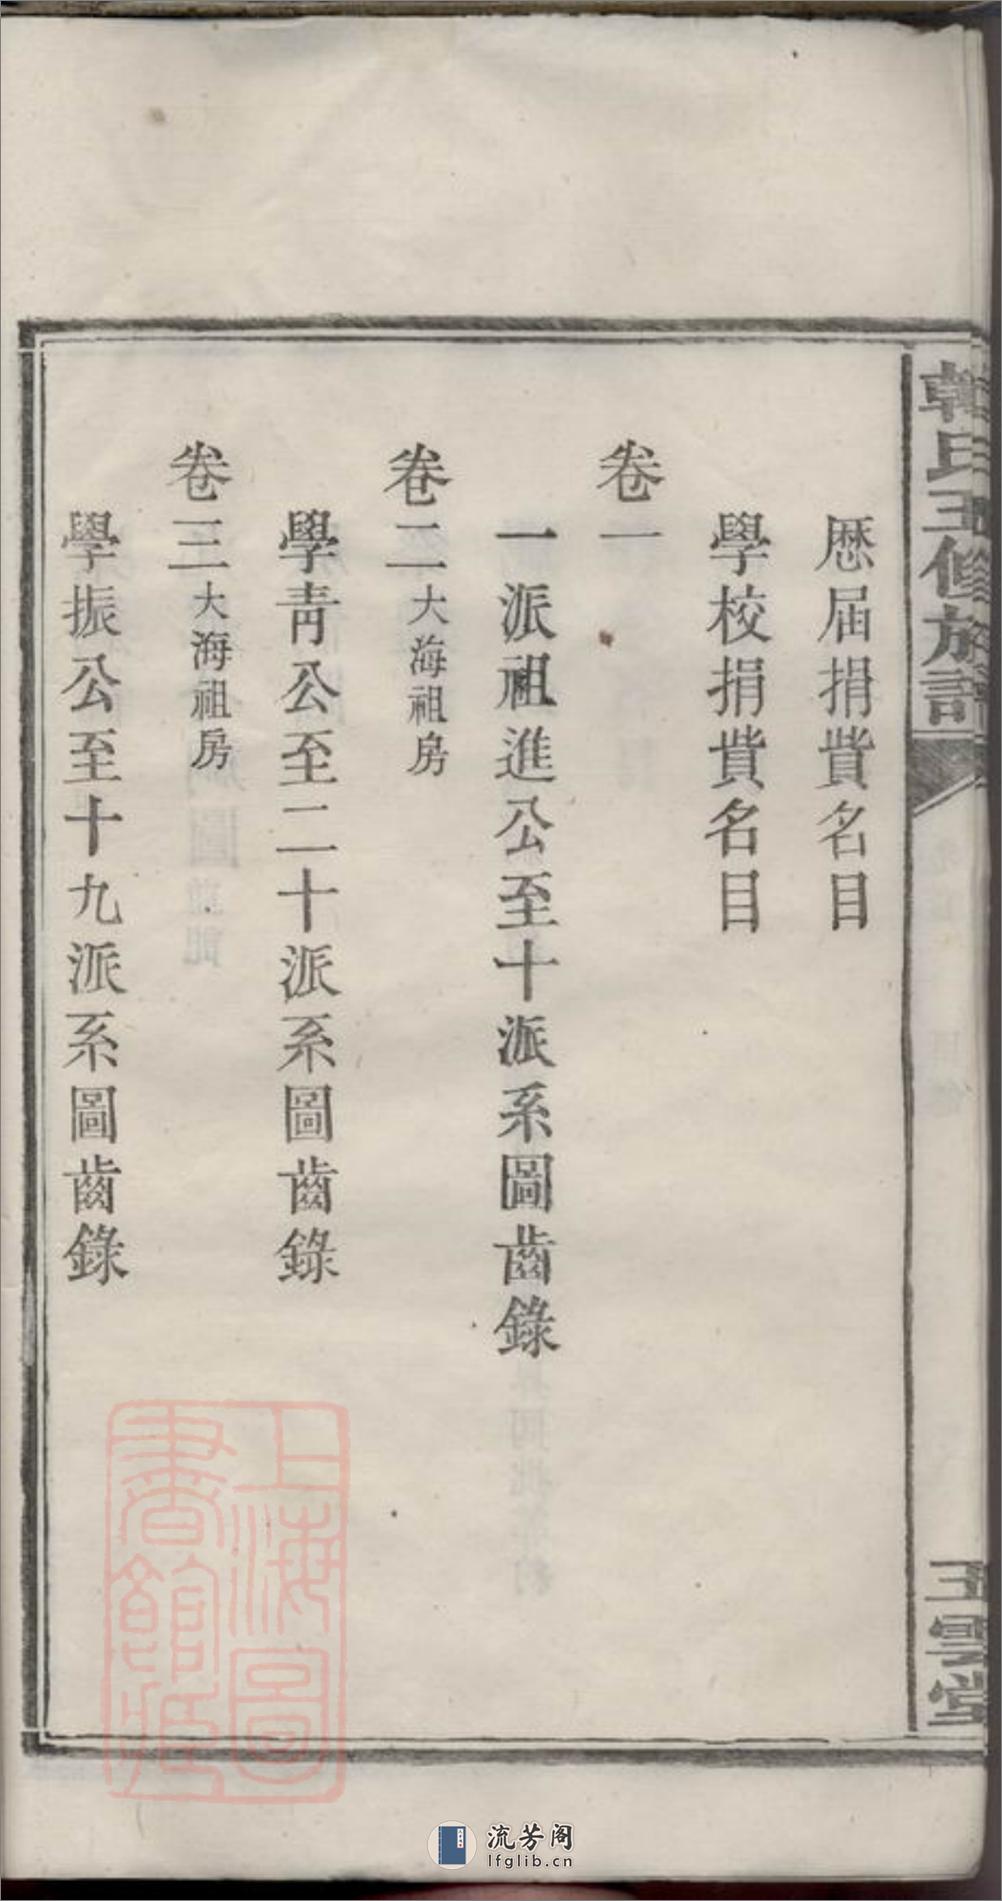 歷屆捐貲名目
學校捐貲名目
卷一
一派祖進公至十派系圖齒錄
卷二大海祖房
學靑公至二十派系圖齒錄
卷三大海祖房
學振公至十九派系圖齒錄
韓氏五修族譜
五雲堂
上海圖書館藏
流芳阁
lfglib.cn